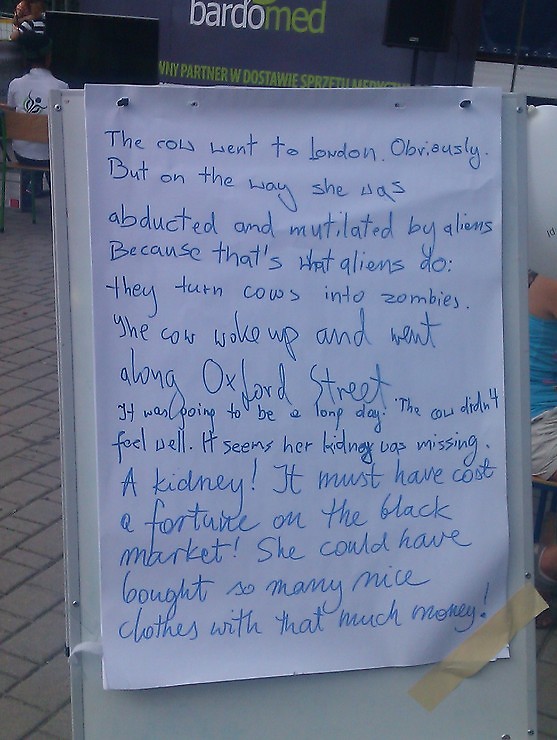 bardomed
WNY PARTNER W DOSTAWIE SPRZĘTU MEDYCZN
The cow went to London. Obviously.
But on the way she was
abducted and mutilated by aliens
Because that's what aliens do:
they turn cows into zombies.
The cow woke up and went
along Oxford Street.
It was going to be a long day. The cow didn't
feel well. It seems her kidney was missing.
A kidney! It must have cost
a fortune on the black
market! She could have
bought so many nice
clothes with that much money!